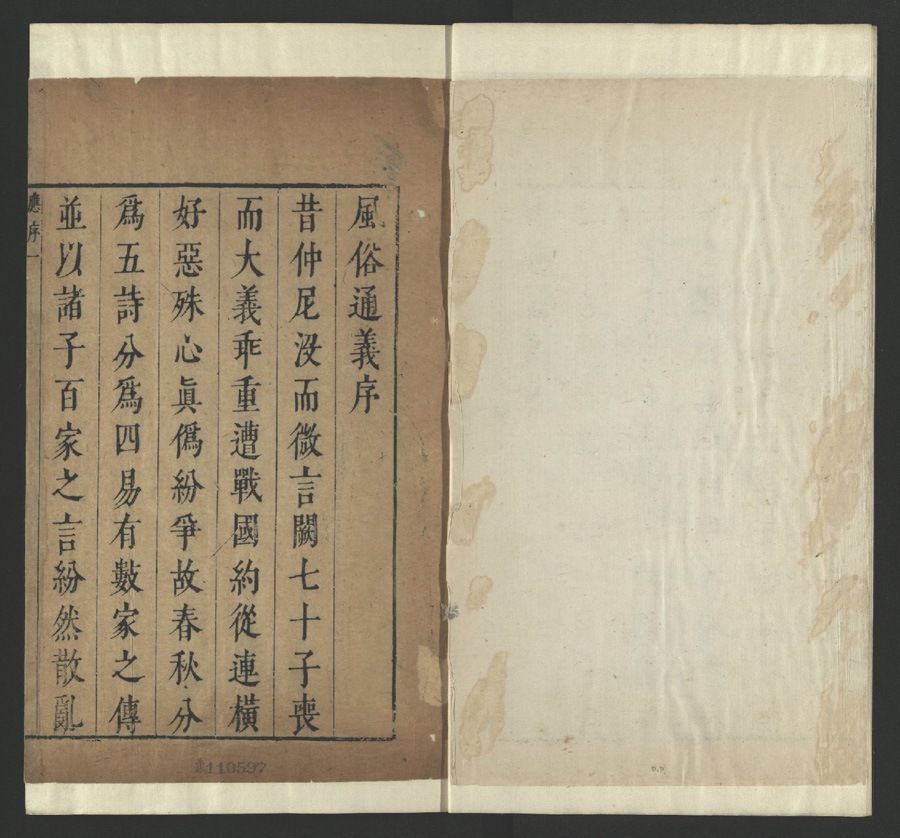 風俗通義序
昔仲尼没而微言闕七十子喪
而大義乖重遭戰國約從連橫
好惡殊心眞僞紛爭故春秋分
爲五詩分爲四易有數家之傳
並以諸子百家之言紛然散亂
應序一
110597